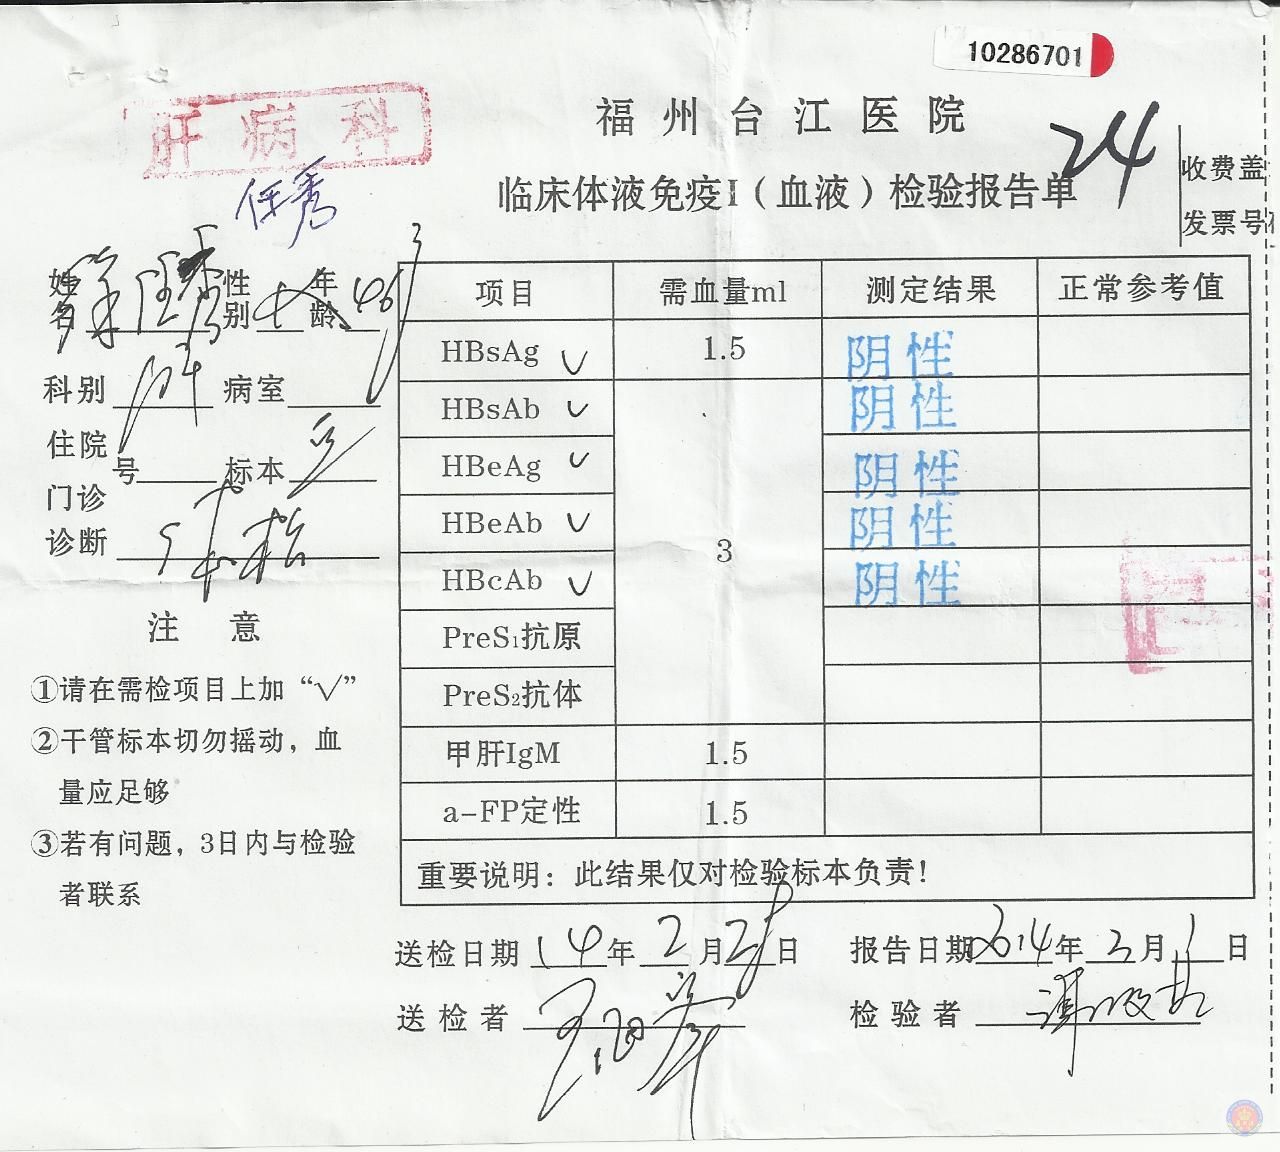 10286701
肝病科
福州台江医院
24
收费盖
临床体液免疫I（血液）检验报告单
发票号
任秀
姓名 性别 女 年龄 46
科别 肝 病室
住院号 标本
门诊
诊断
注 意
①请在需检项目上加“√”
②干管标本切勿摇动，血
量应足够
③若有问题，3日内与检验
者联系
项目 需血量ml 测定结果 正常参考值
HBsAg √ 1.5 阴性
HBsAb √ 阴性
HBeAg √ 阴性
HBeAb √ 3 阴性
HBcAb √ 阴性
PreS₁抗原
PreS₂抗体
甲肝IgM 1.5
a-FP定性 1.5
重要说明：此结果仅对检验标本负责！
送检日期 14年2月28日 报告日期 2014年3月1日
送检者 检验者